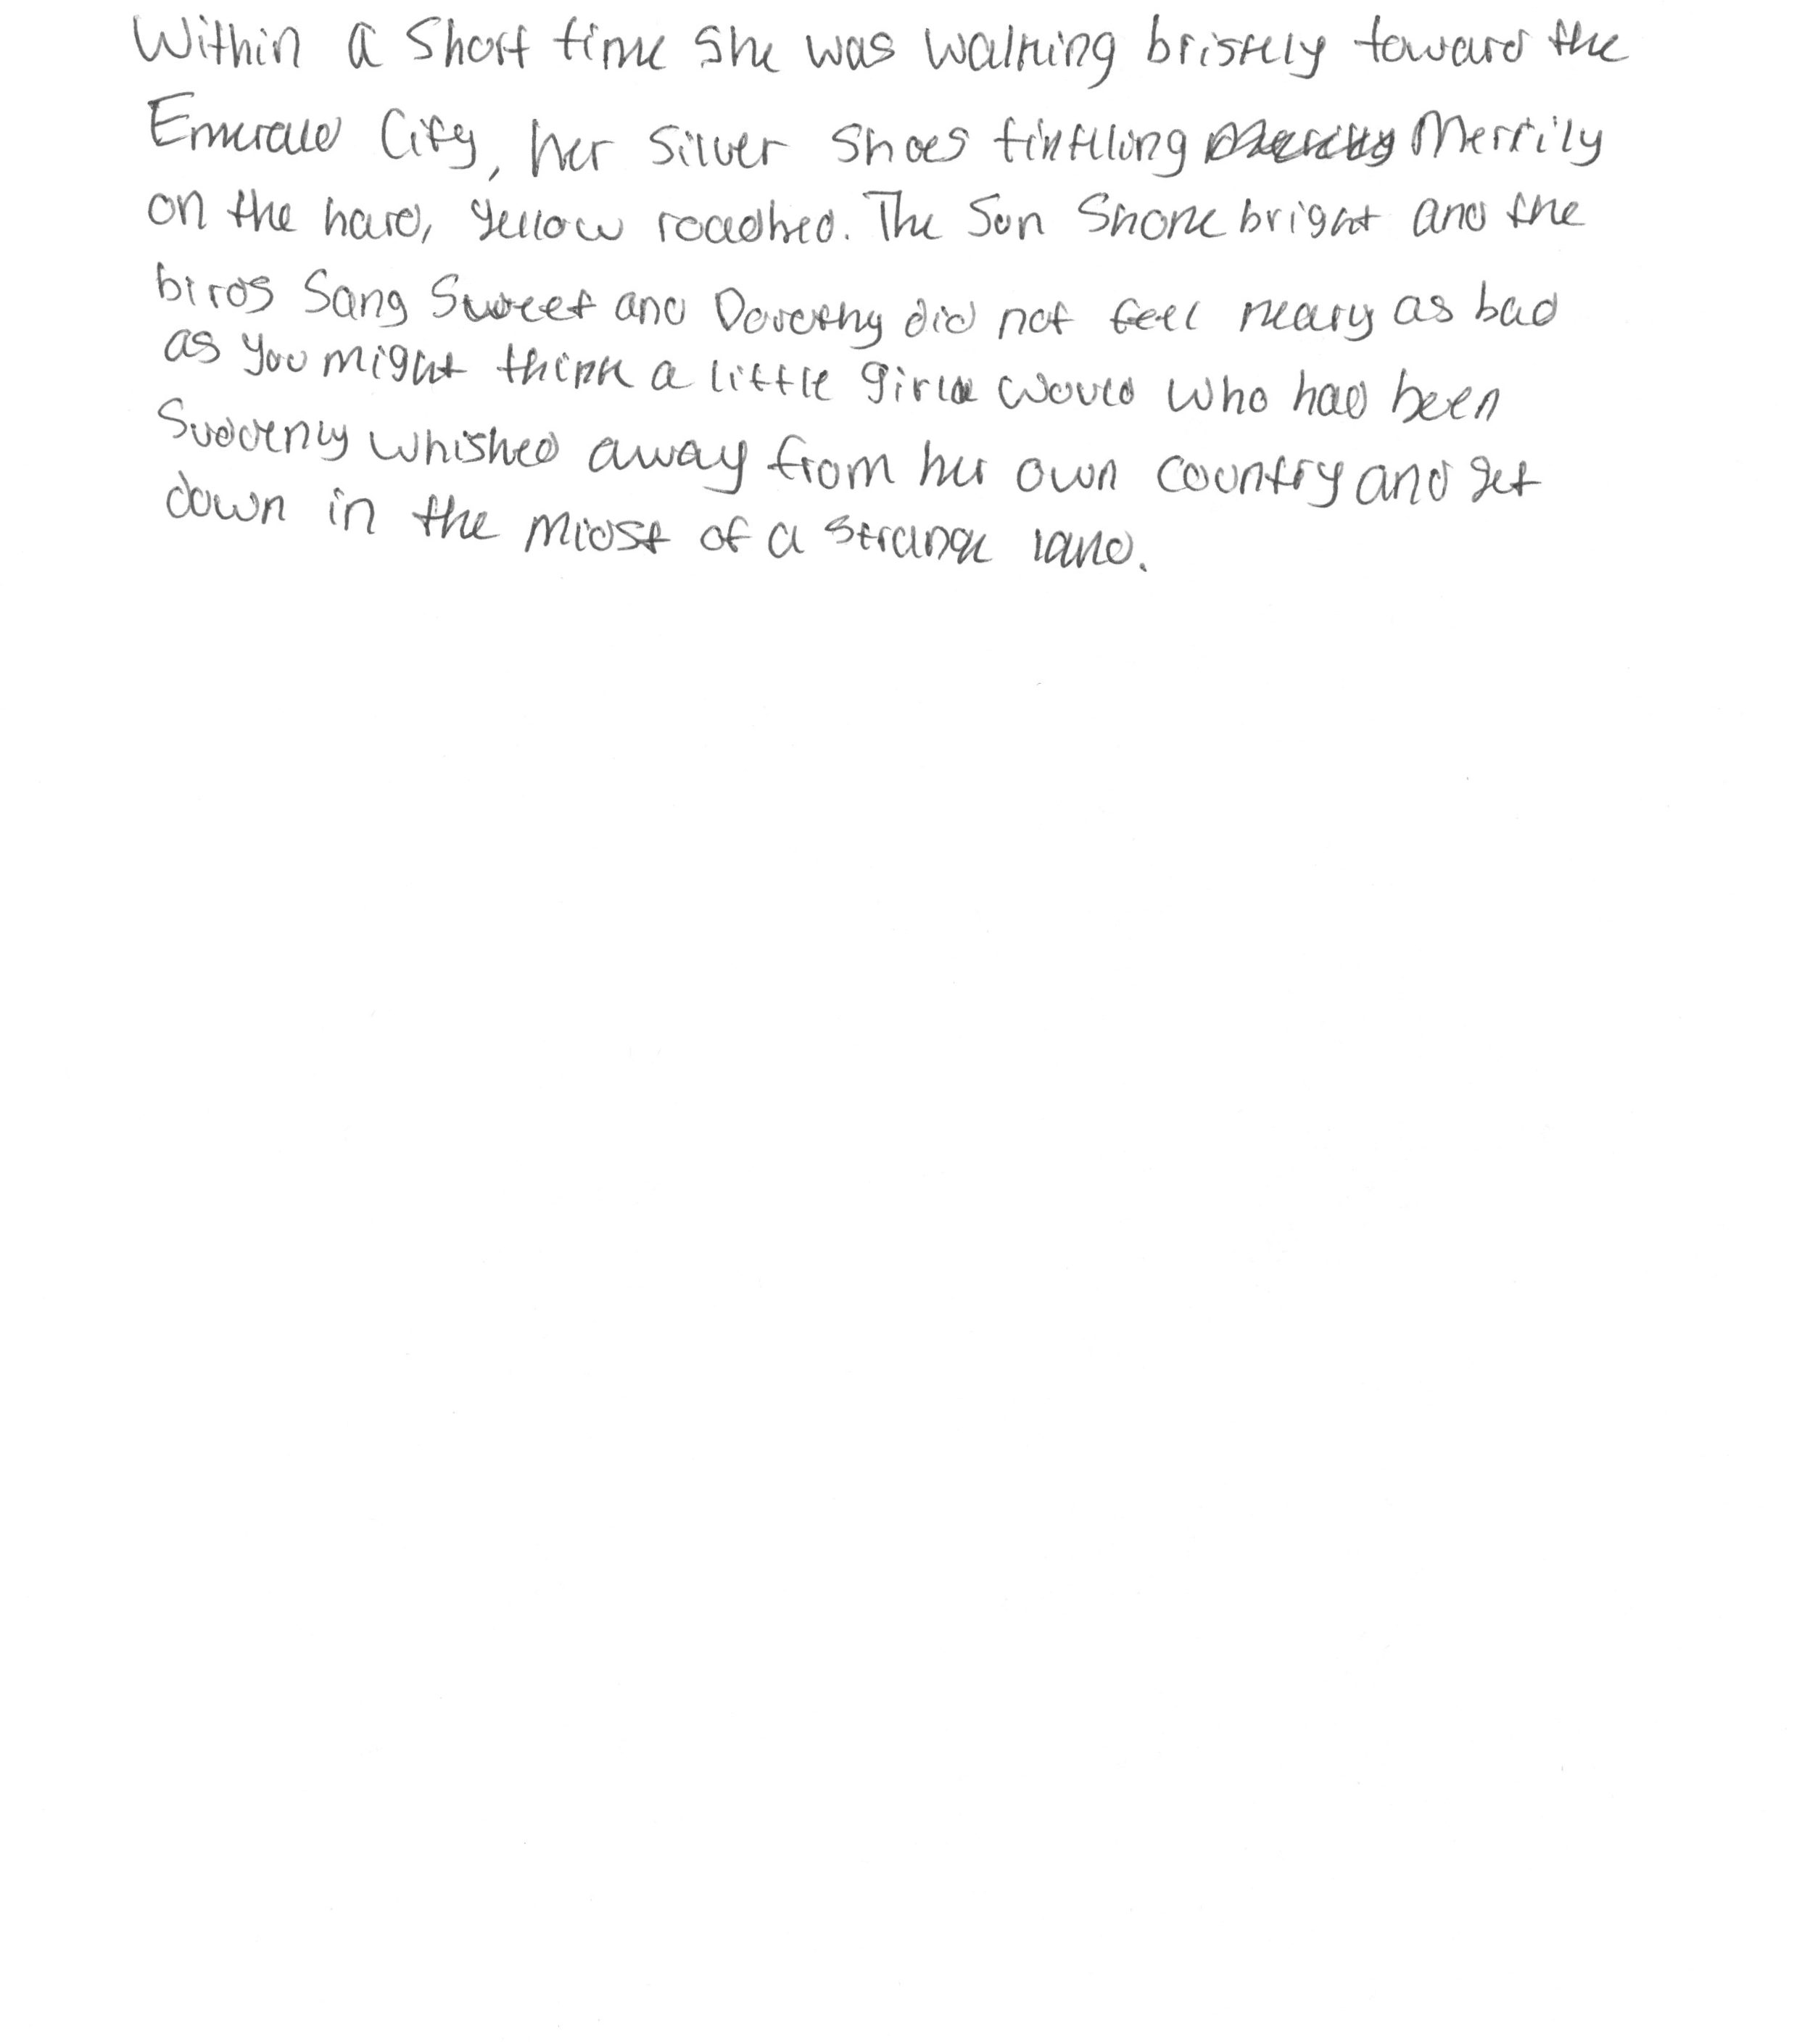 Within a Short time She was walking briskly toward the
Emerald City, her Silver Shoes tinkling Merrily
on the hard, yellow roadbed. The Sun Shone bright and the
birds Sang Sweet and Dorothy did not feel neary as bad
as you might think a little girl would who had been
Suddenly whished away from her own country and set
down in the midst of a strange land.